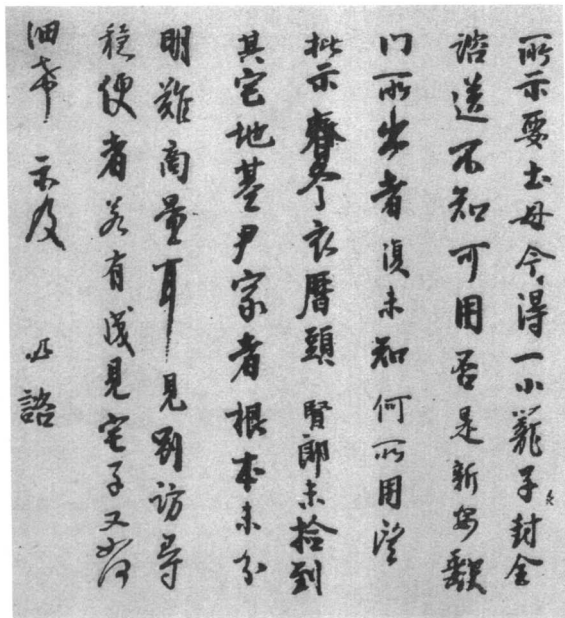 所示要土母今得一小籠子封全
諮送不知可用否是新安缺
门所出者復未知何所用望
批示 春冬衣曆頭 賢郎未撿到
其宅地基尹家者根本未分
明難商量耳見別訪尋
穩便者若有成見宅子又如何
細希 示及 諮